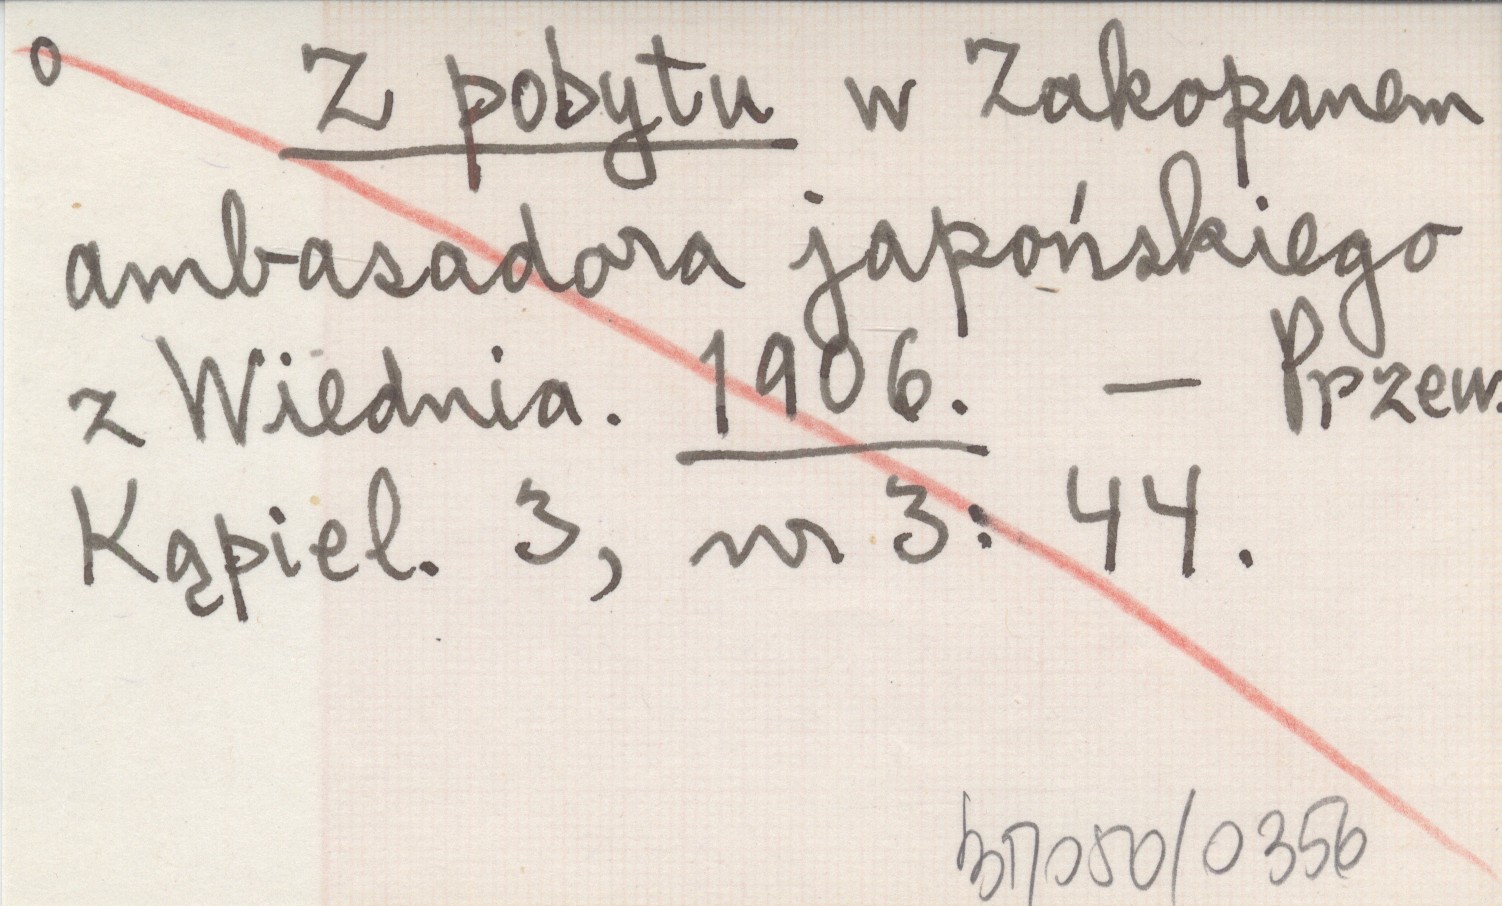 o Z pobytu w Zakopanem
ambasadora japońskiego
z Wiednia. 1906. — Przew.
Kąpiel. 3, nr 3: 44.
0356